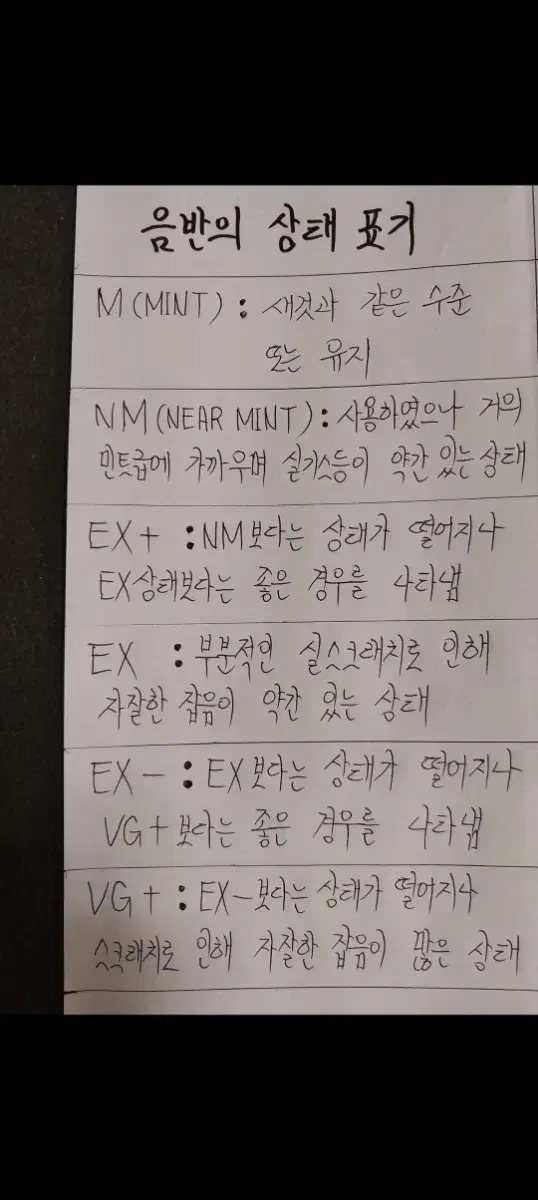 음반의 상태 표기
M(MINT) : 새것과 같은 수준
또는 유지
NM(NEAR MINT) : 사용하였으나 거의
민트급에 가까우며 실기스등이 약간 있는 상태
EX+ : NM보다는 상태가 떨어지나
EX상태보다는 좋은 경우를 나타냄
EX : 부분적인 실스크래치로 인해
자잘한 잡음이 약간 있는 상태
EX- : EX보다는 상태가 떨어지나
VG+보다는 좋은 경우를 나타냄
VG+ : EX-보다는 상태가 떨어지나
스크래치로 인해 자잘한 잡음이 많은 상태